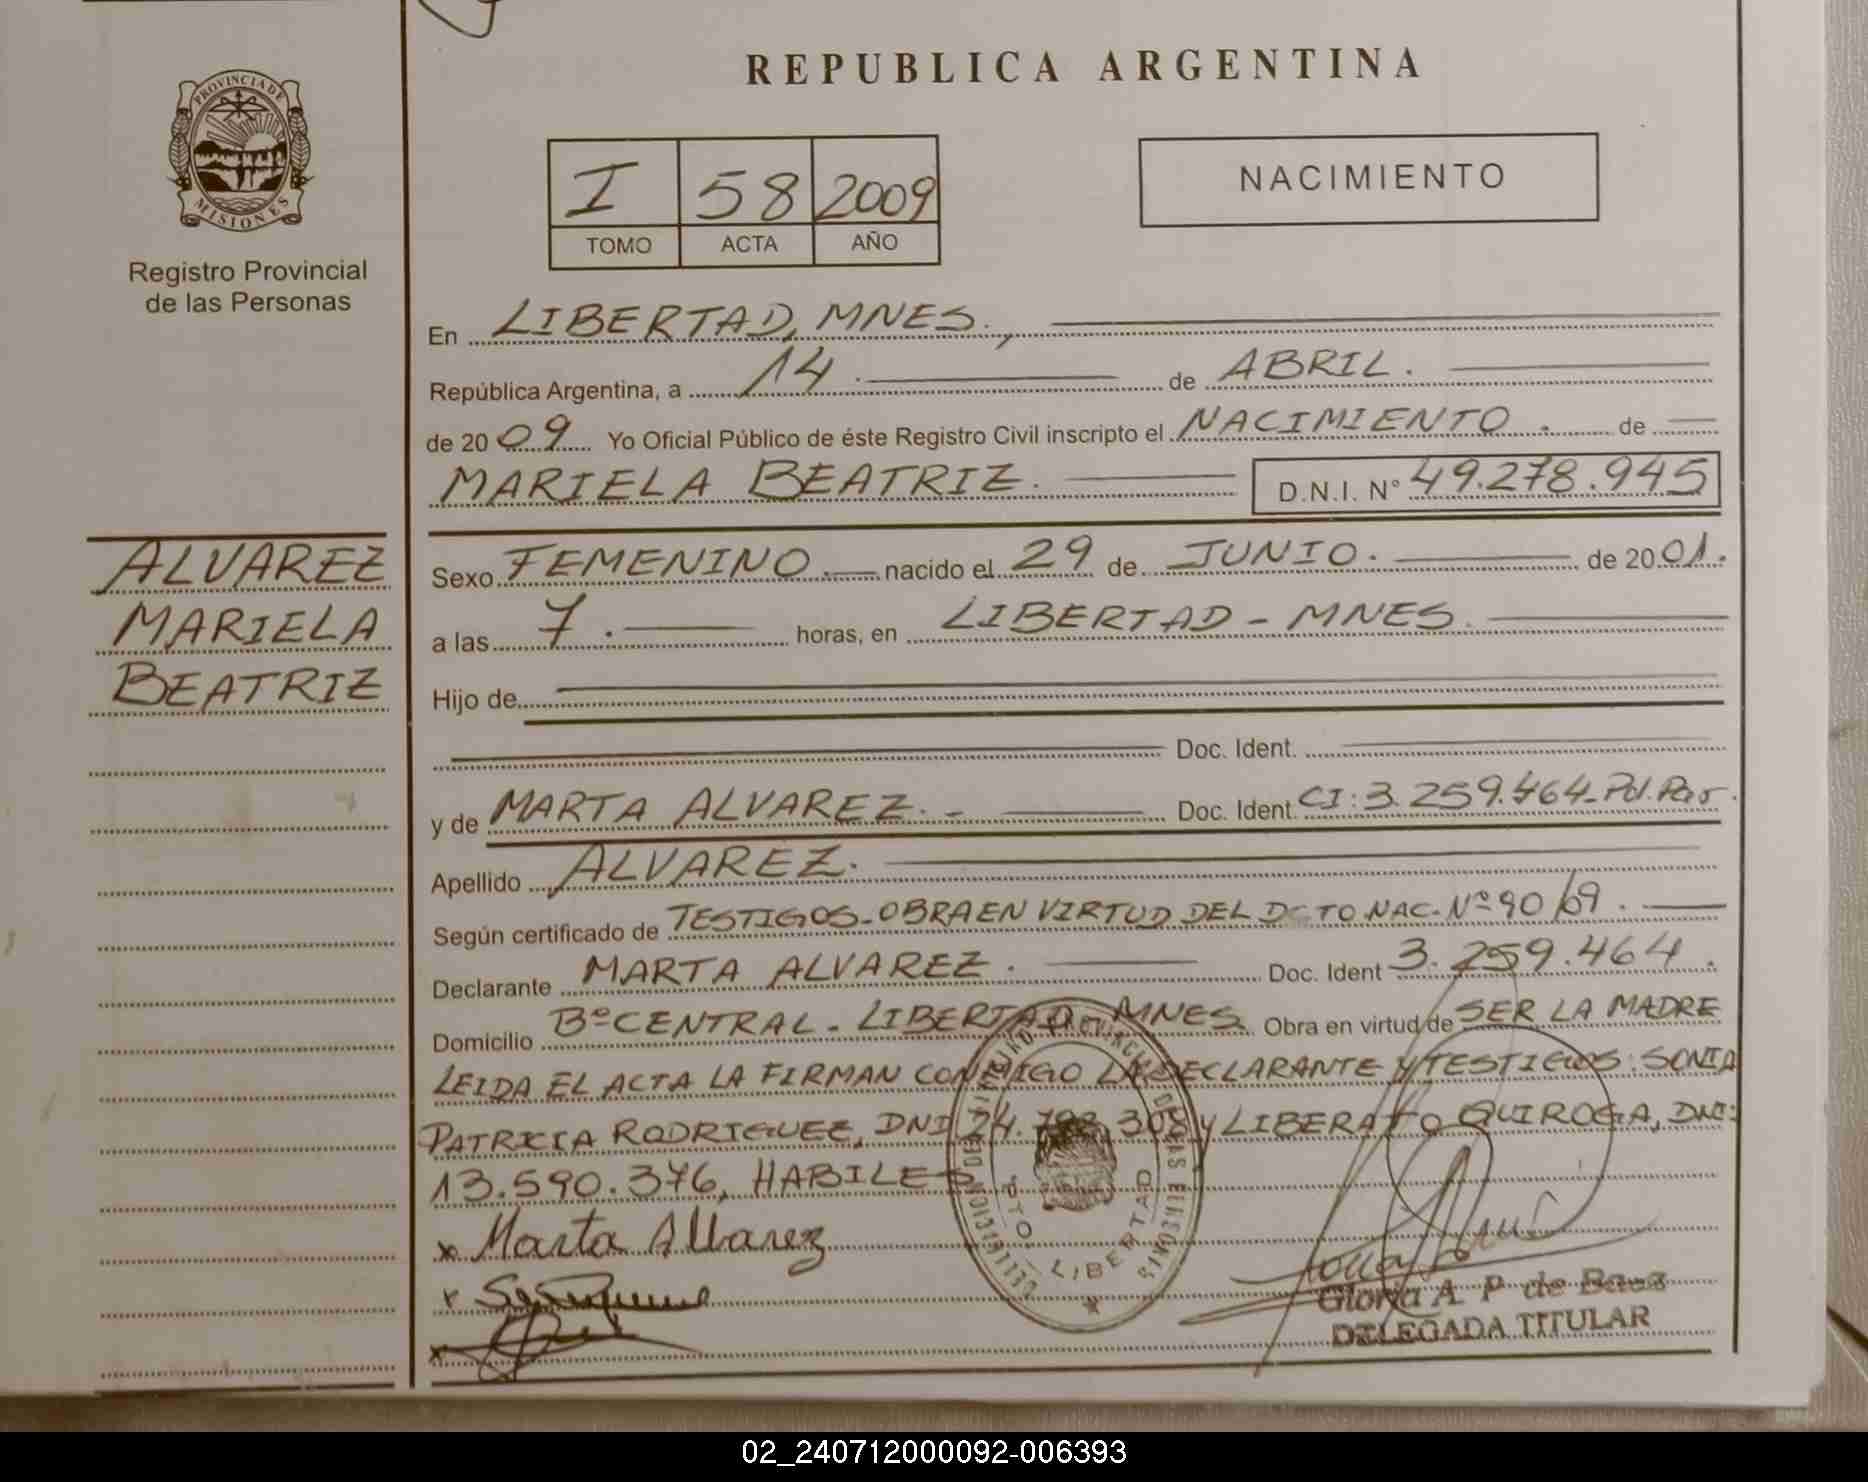 REPUBLICA ARGENTINA
PROVINCIA DE
MISIONES
Registro Provincial
de las Personas
I 58 2009
TOMO ACTA AÑO
NACIMIENTO
En LIBERTAD, MNES.,
República Argentina, a 14. de ABRIL.
de 2009 Yo Oficial Público de éste Registro Civil inscripto el NACIMIENTO. de
MARIELA BEATRIZ. D.N.I. N° 49.278.945
ALVAREZ
MARIELA
BEATRIZ
Sexo FEMENINO. nacido el 29 de JUNIO. de 2001.
a las 7. horas, en LIBERTAD - MNES.
Hijo de
Doc. Ident.
y de MARTA ALVAREZ. - Doc. Ident. CI: 3.259.464-Pol.
Apellido ALVAREZ.
Según certificado de TESTIGOS-OBRA EN VIRTUD DEL DCTO NAC. Nº 90/09.
Declarante MARTA ALVAREZ. Doc. Ident 3.259.464.
Domicilio Bº CENTRAL - LIBERTAD - MNES Obra en virtud de SER LA MADRE
LEIDA EL ACTA LA FIRMAN CONMIGO LA DECLARANTE Y TESTIGOS: SONIA
PATRICIA RODRIGUEZ, DNI 24. 308 y LIBERATO QUIROGA, DNI:
13.590.376, HABILES
x Marta Albarez
x
x
DTO. LIBERTAD
Gloria A. P de Baez
DELEGADA TITULAR
02_240712000092-006393